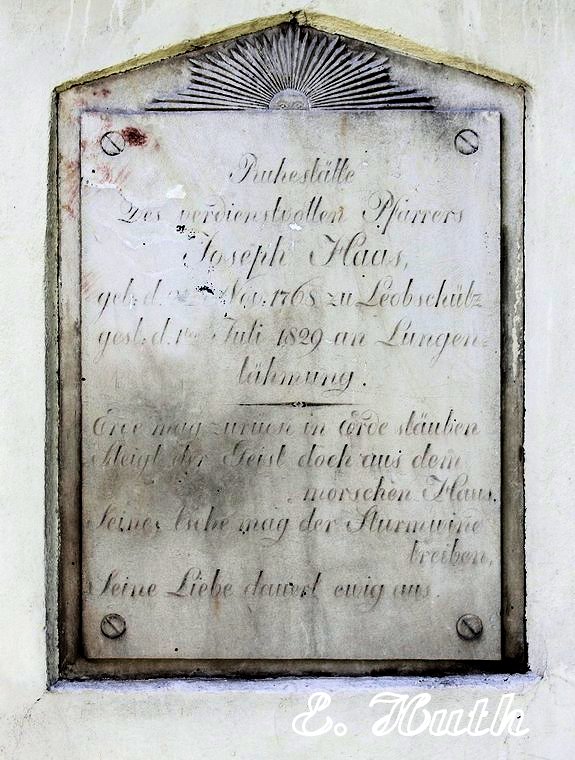 Ruhestätte
Des verdienstvollen Pfarrers
Joseph Haas,
geb. d. Nov. 1768 zu Leobschütz
gest. d. 1ten Juli 1829 an Lungen=
lähmung.
Erde mag zurück in Erde stäuben
Steigt der Geist doch aus dem
morschen Haus.
Seine Asche mag der Sturmwind
treiben,
Seine Liebe dauert ewig aus.
E. Huth